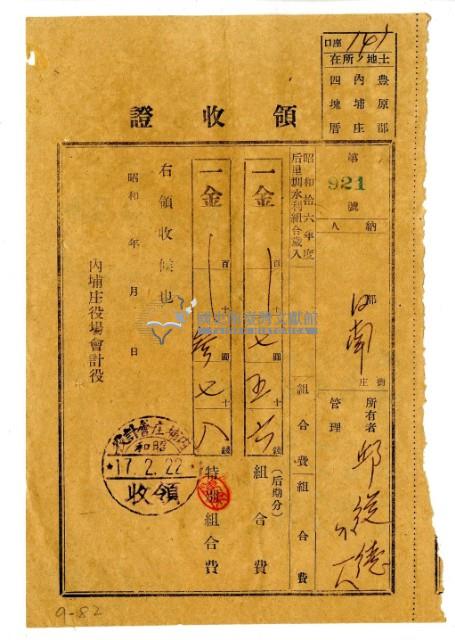 口座 141
土地ノ所在
豊原郡
內埔庄
四塊厝
領收證
第 921 號
納人
郡 庄 街
日南
所有者
管理
邱
昭和拾六年度
后里圳水利組合歲入
組合費
組合費
一金 百 十 七圓 五十 六錢
(后期分)
組合費
一金 百 十 參圓 七十 八錢
特別組合費
右領收候也
昭和 年 月 日
內埔庄役場會計役
內埔庄會計役
昭和
17.2.22
領收
國史館臺灣文獻館
9-82